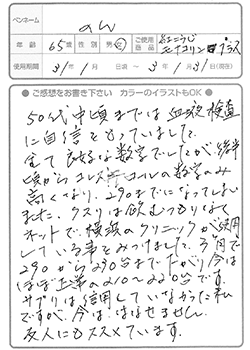 ペンネーム のん
年齢 65歳 性別 男・女 ご使用商品 紅こうじモナコリンプラス
使用期間 31年1月 日頃〜31年3月 日(現在)
◉ ご感想をお書き下さい カラーのイラストもOK ◉
50代中頃までは血液検査
に自信をもっていました。
全て良好な数字でしたが後半
頃からコレステロールの数字のみ
高くなり、290までになってしまい
ました。クスリは飲むつもりはなく
ネットで、横浜のクリニックが使用
している事をみつけました。3ヶ月で
290から230台まで下がり今は
ほぼ上準の210〜220台です。
サプリは信用していなかった私
ですが、今は、はなせません。
友人にもススメています。